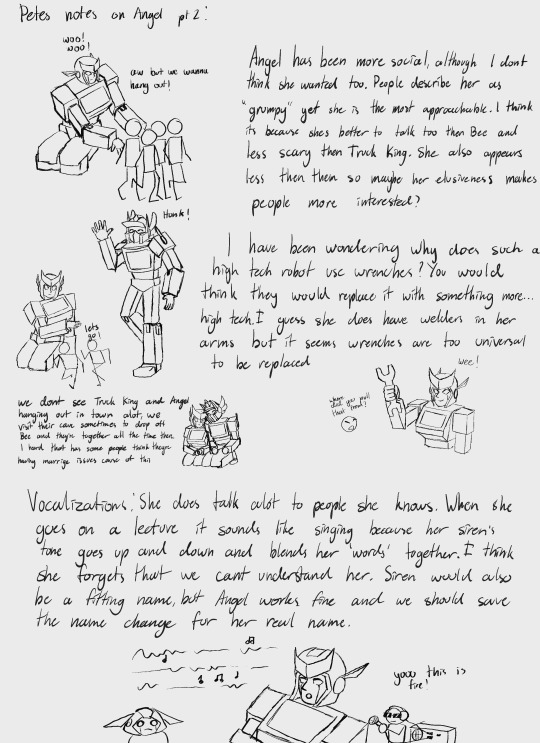 Petes notes on Angel pt 2:
woo!
woo!
aw but we wanna
hang out!
Angel has been more social, although I dont
think she wanted too. People describe her as
"grumpy" yet she is the most approachable. I think
its because shes better to talk too then Bee and
less scary then Truck King. She also appears
less then them so maybe her elusiveness makes
people more interested?
Honk!
lets
go!
I have been wondering why does such a
high tech robot use wrenches? You would
think they would replace it with something more...
high tech. I guess she does have welders in her
arms but it seems wrenches are too universal
to be replaced
wee!
did you pull
that from?
we dont see Truck King and Angel
hanging out in town alot, we
visit their cave sometimes to drop off
Bee and theyre together all the time then.
I hard that has some people think theyre
having marrige issues cause of this
Vocalizations: She does talk alot to people she knows. When she
goes on a lecture it sounds like singing because her siren's
tone goes up and down and blends her 'words' together. I think
she forgets that we cant understand her. Siren would also
be a fitting name, but Angel works fine and we should save
the name change for her real name.
yooo this is
fire!